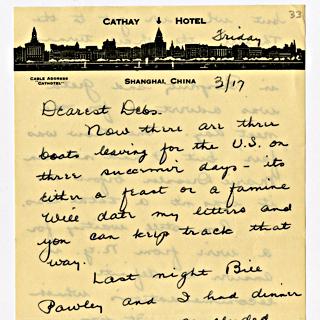 33
CATHAY HOTEL
Friday
CABLE ADDRESS
"CATHOTEL"
SHANGHAI, CHINA
3/17
Dearest Debs.
Now there are three
boats leaving for the U.S. on
three successive days - its
either a feast or a famine
Will date my letters and
you can keep track that
way.
Last night Bill
Pawley and I had dinner